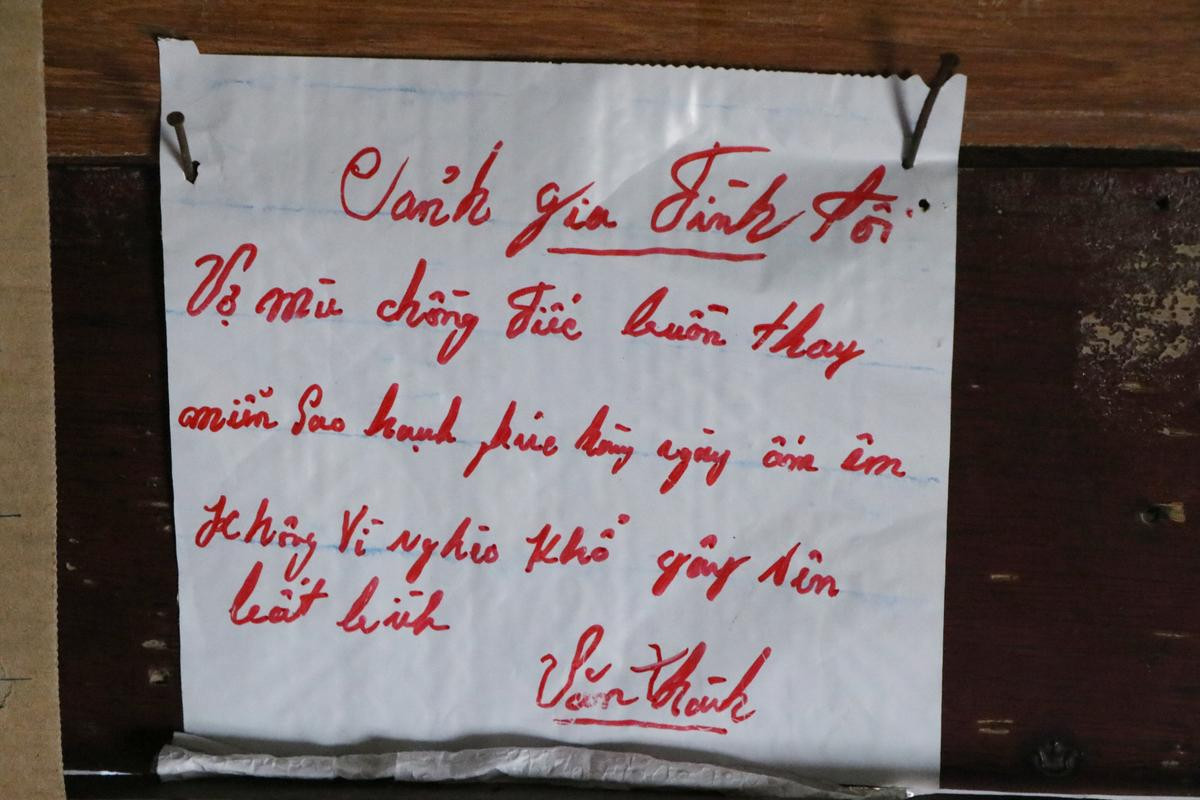 Cảnh gia đình tôi
Vợ mù chồng điếc buồn thay
miễn sao hạnh phúc hàng ngày ấm êm
không vì nghèo khổ gây nên
bất bình
Văn Thành